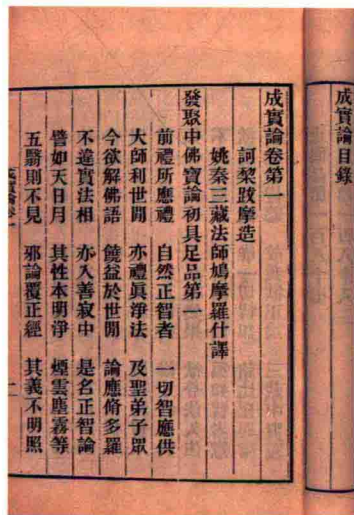 成實論目錄
成實論卷第一
訶棃跋摩造
姚秦三藏法師鳩摩羅什譯
發聚中佛寶論初具足品第一
前禮所應禮　自然正智者　一切智應供
大師利世閒　亦禮眞淨法　及聖弟子眾
今欲解佛語　饒益於世閒　論應脩多羅
不違實法相　亦入善寂中　是名正智論
譬如天日月　其性本明淨　煙雲塵霧等
五翳則不見　邪論覆正經　其義不明照